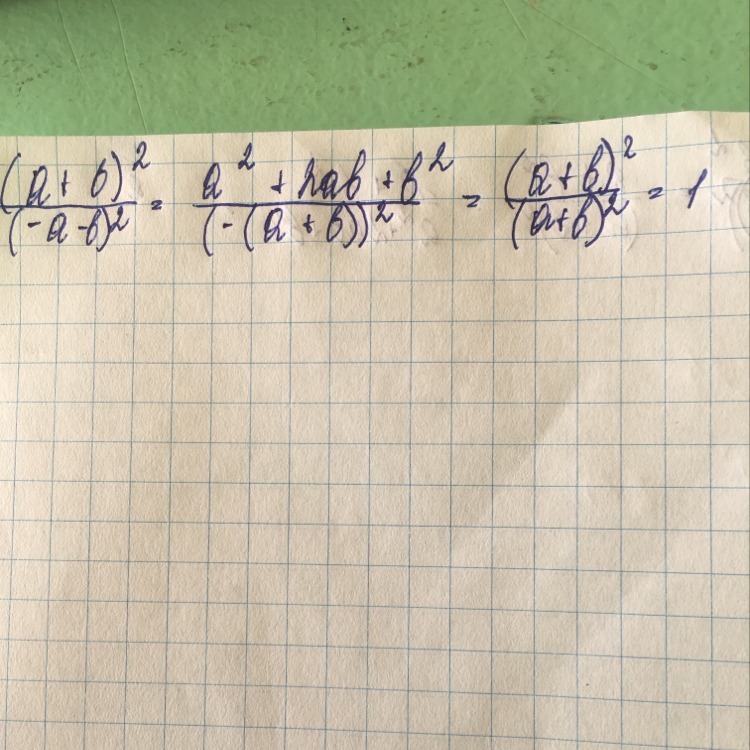 (a + b)² / (-a - b)² = a² + 2ab + b² / (-(a + b))² = (a + b)² / (a + b)² = 1